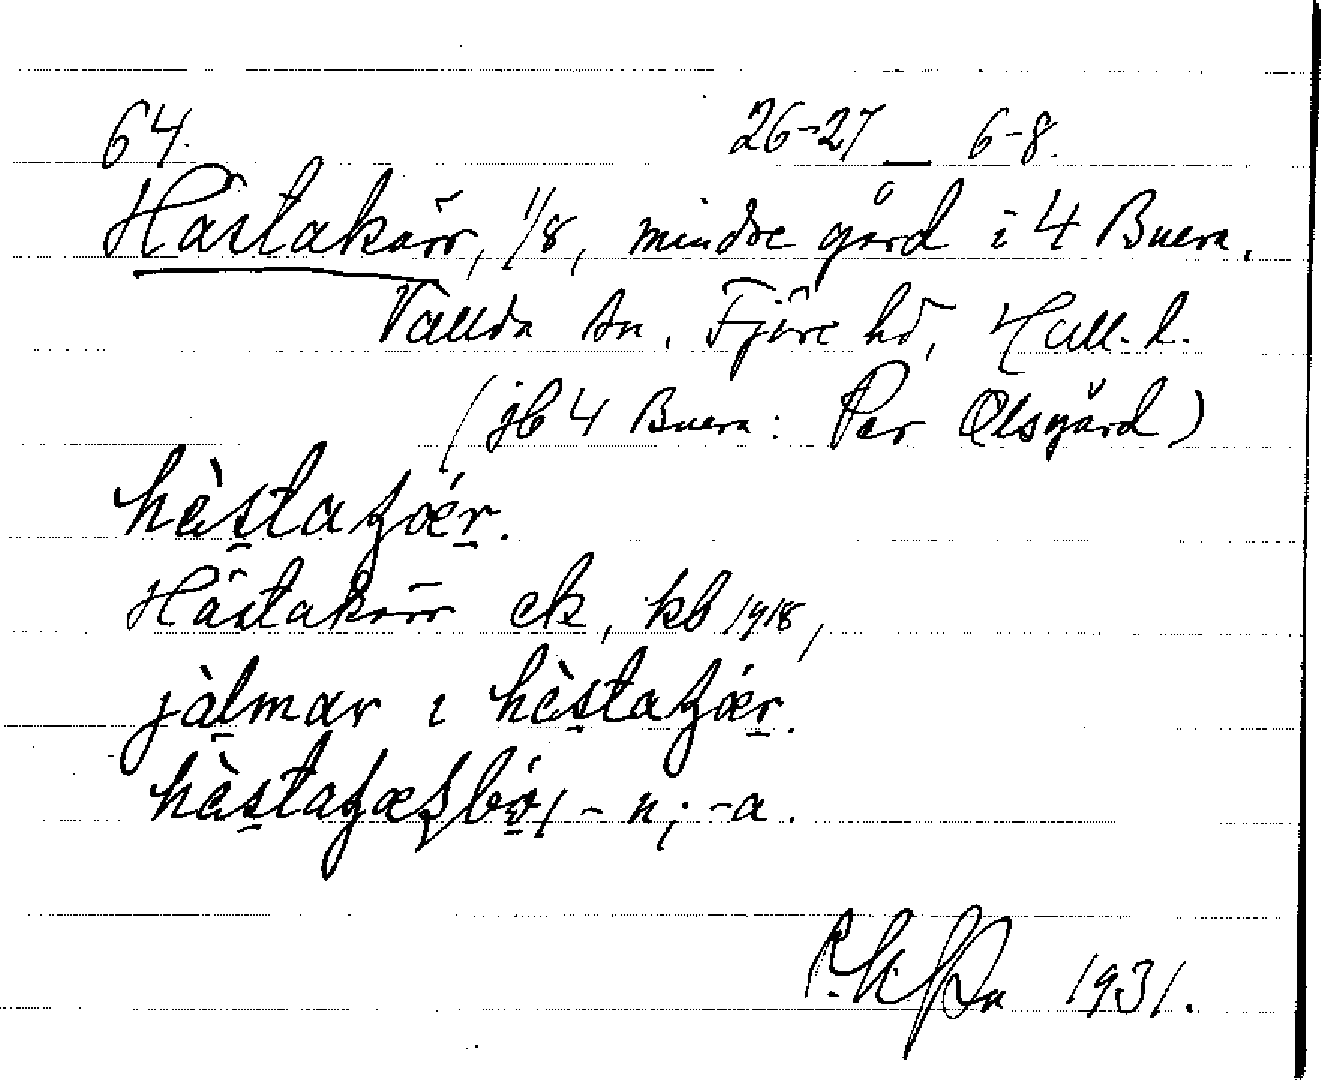 64. 26-27 — 6-8.
Hästakärr, 1/8, mindre gård i 4 Buera,
Vallda sn, Fjäre hd, Hall. l.
(jb 4 Buera: Per Olsgård)
hèstaʒær.
Hästakärr ek, kb 1918,
jàlmar i hèstaʒær.
1931.